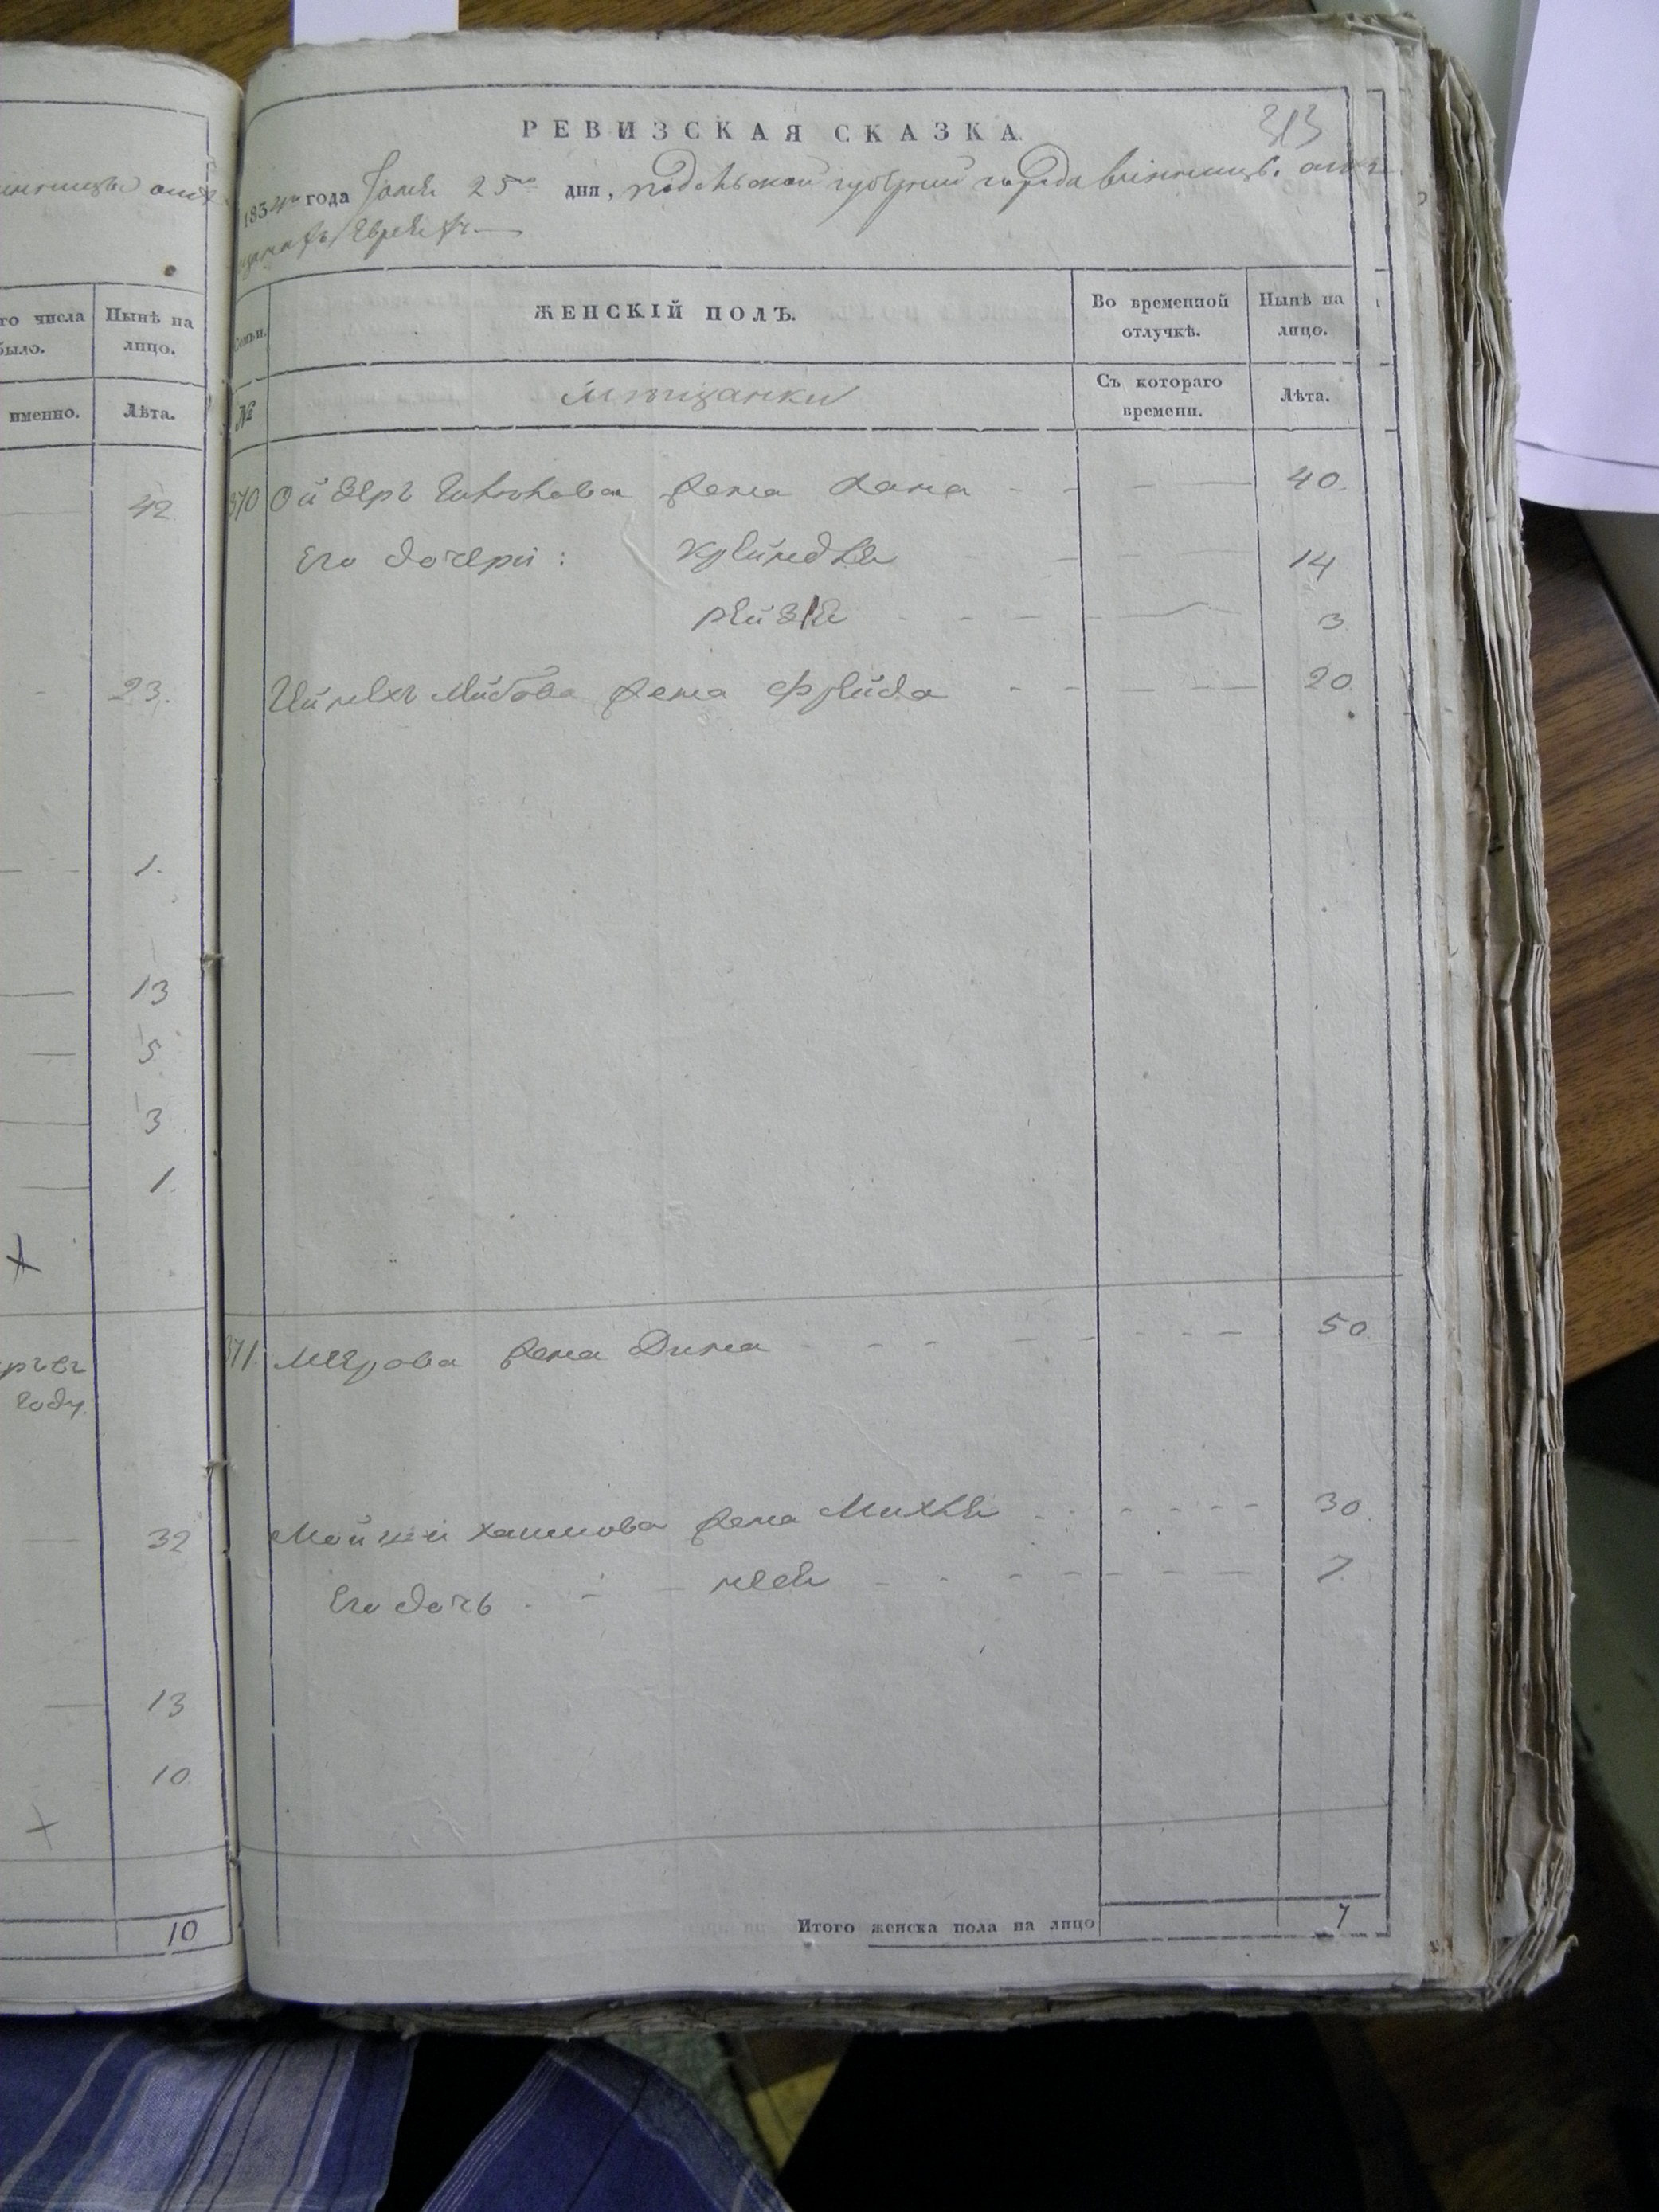 313
РЕВИЗСКАЯ СКАЗКА.
1834го года Июня 25го дня, Подольской губернии города Винницы. о
Евреяхъ
го числа
было.
Нынѣ на
лицо.
именно.
Лѣта.
42
23.
1.
13
5
3
1.
году.
32
13
10
10
Семьи.
ЖЕНСКІЙ ПОЛЪ.
Во временной
отлучкѣ.
Нынѣ на
лицо.
№
мѣщанки
Съ котораго
времени.
Лѣта.
370 Ойзеръ жена Хана 40.
Его дочери: Крейндля 14
Рейзя 3
жена Фрейда 20.
371. Мерова жена Дина 50.
Мошки Хаимова жена Михля 30.
Его дочь Неся 7.
Итого женска пола на лицо 7